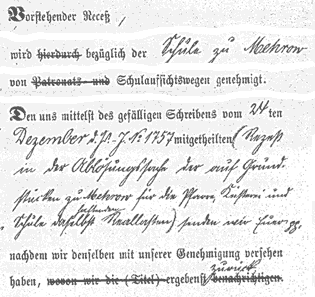 Vorstehender Receß,
wird hierdurch bezüglich der Schule zu Mehrow
von Patronats- und Schulaufsichtswegen genehmigt.
Den uns mittelst des gefälligen Schreibens vom 24 ten
Dezember d. Js. J. No 1757 mitgetheilten (Rezeß
in der Ablösungssache der auf Grund-
stücken zu Mehrow für die Pfarre, Küsterei und
Schule daselbst haftenden Reallasten) senden wir Euer pp.
nachdem wir denselben mit unserer Genehmigung versehen
zurück.
haben, wovon wir die (Titel) ergebenst benachrichtigen.